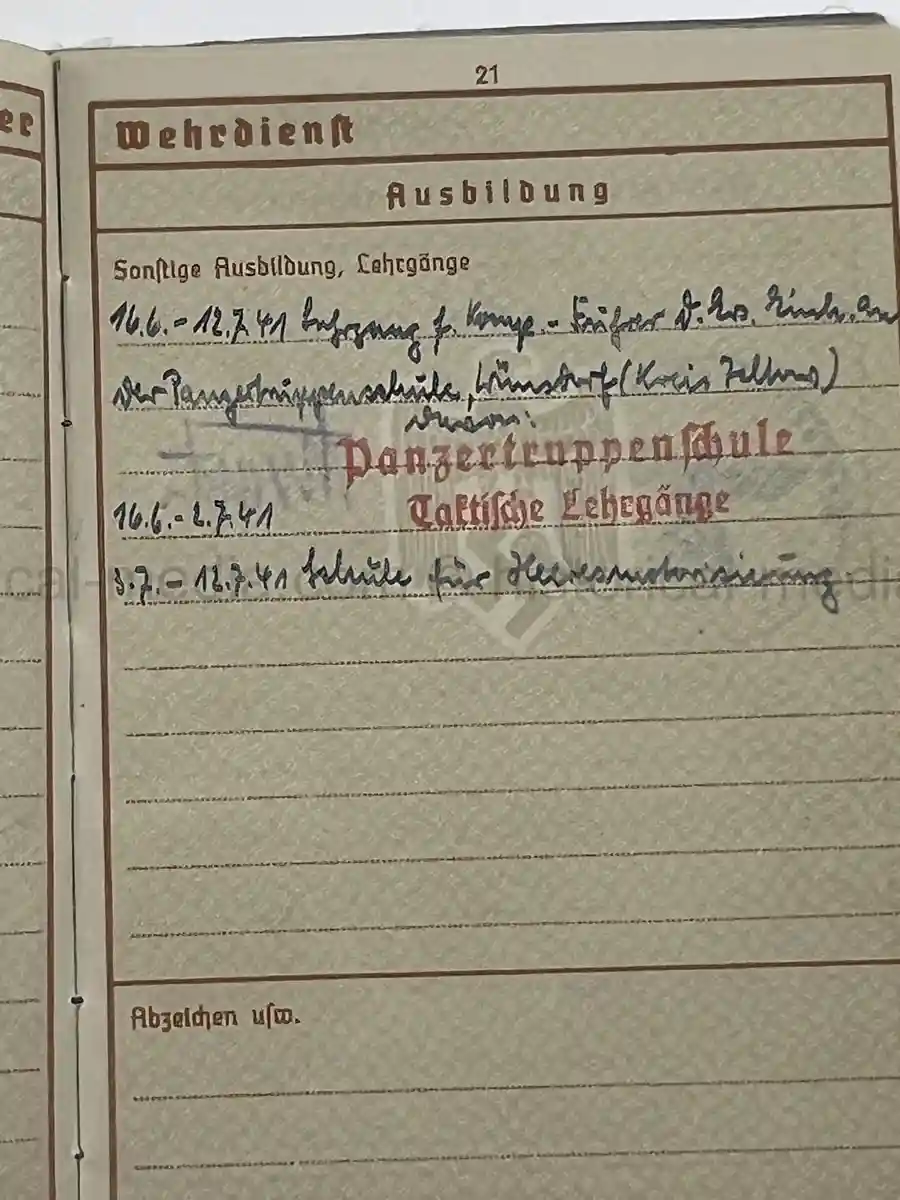 er
21
Wehrdienst
Ausbildung
Sonstige Ausbildung, Lehrgänge
16.6. - 12.7.41 Lehrgang f. Komp. - Führer d. Ers. Einh. an
der Panzertruppenschule, Wünsdorf (Kreis Teltow)
davon:
Panzertruppenschule
16.6. - 2.7.41 Taktische Lehrgänge
3.7. - 12.7.41 Schule für Heeresmotorisierung
Abzeichen usw.